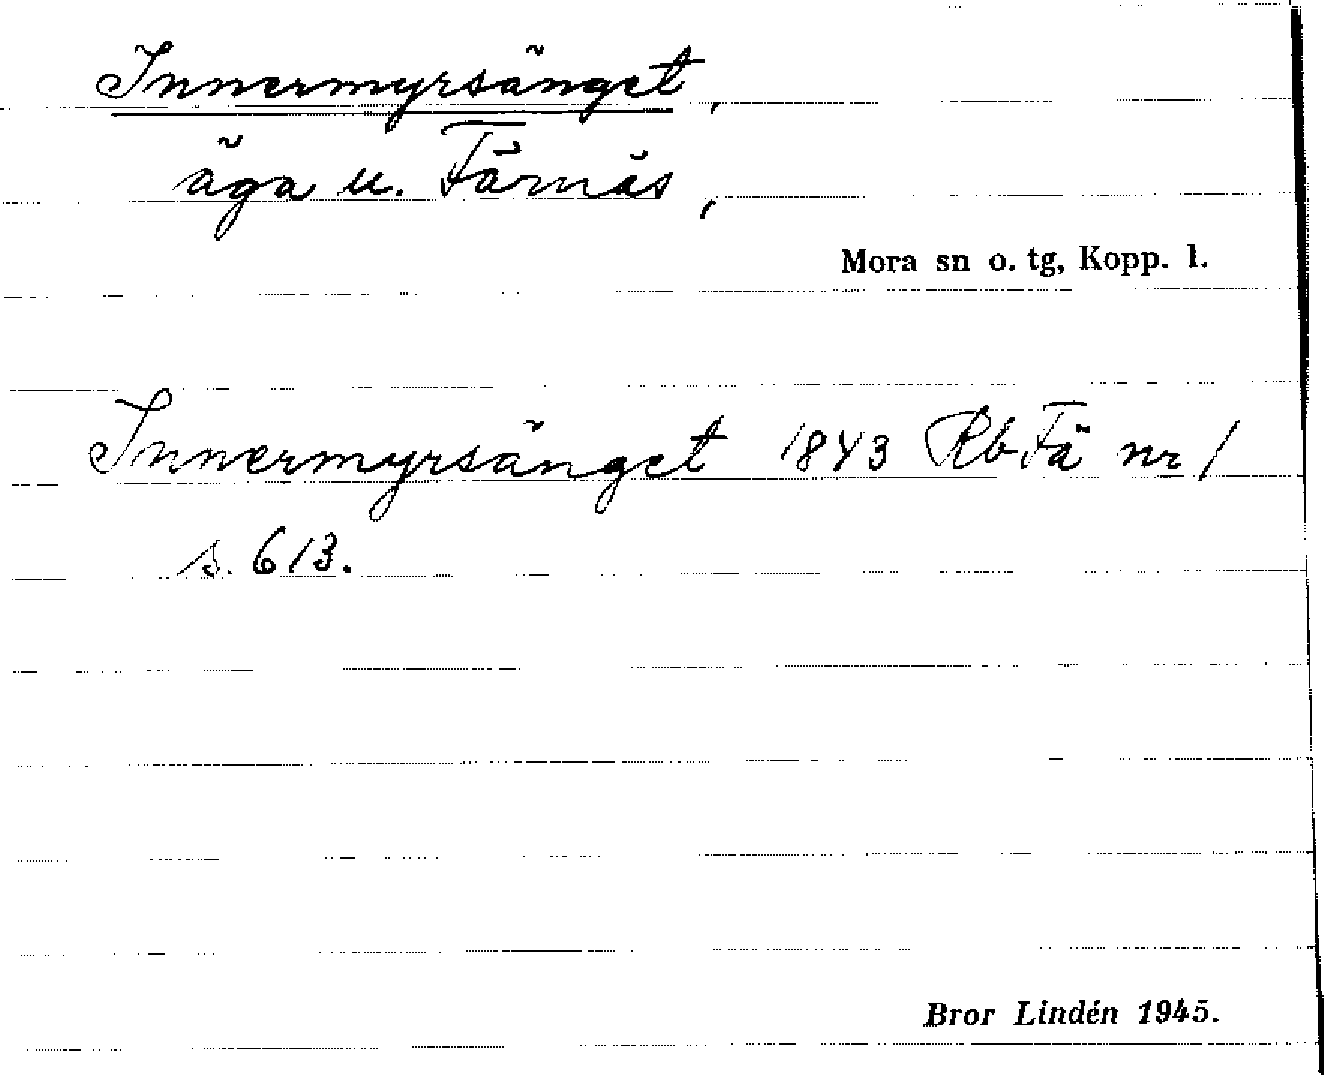 Innermyrsänget,
äga u. Färnäs,
Mora sn o. tg, Kopp. l.
Innermyrsänget 1843 Rb Fä nr 1
s. 613.
Bror Lindén 1945.